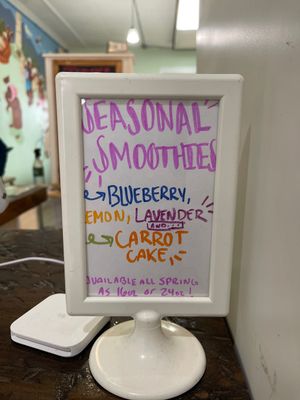 SEASONAL
SMOOTHIES
BLUEBERRY,
LEMON, LAVENDER
AND...
CARROT
CAKE,
AVAILABLE ALL SPRING
AS 16oz or 24oz!